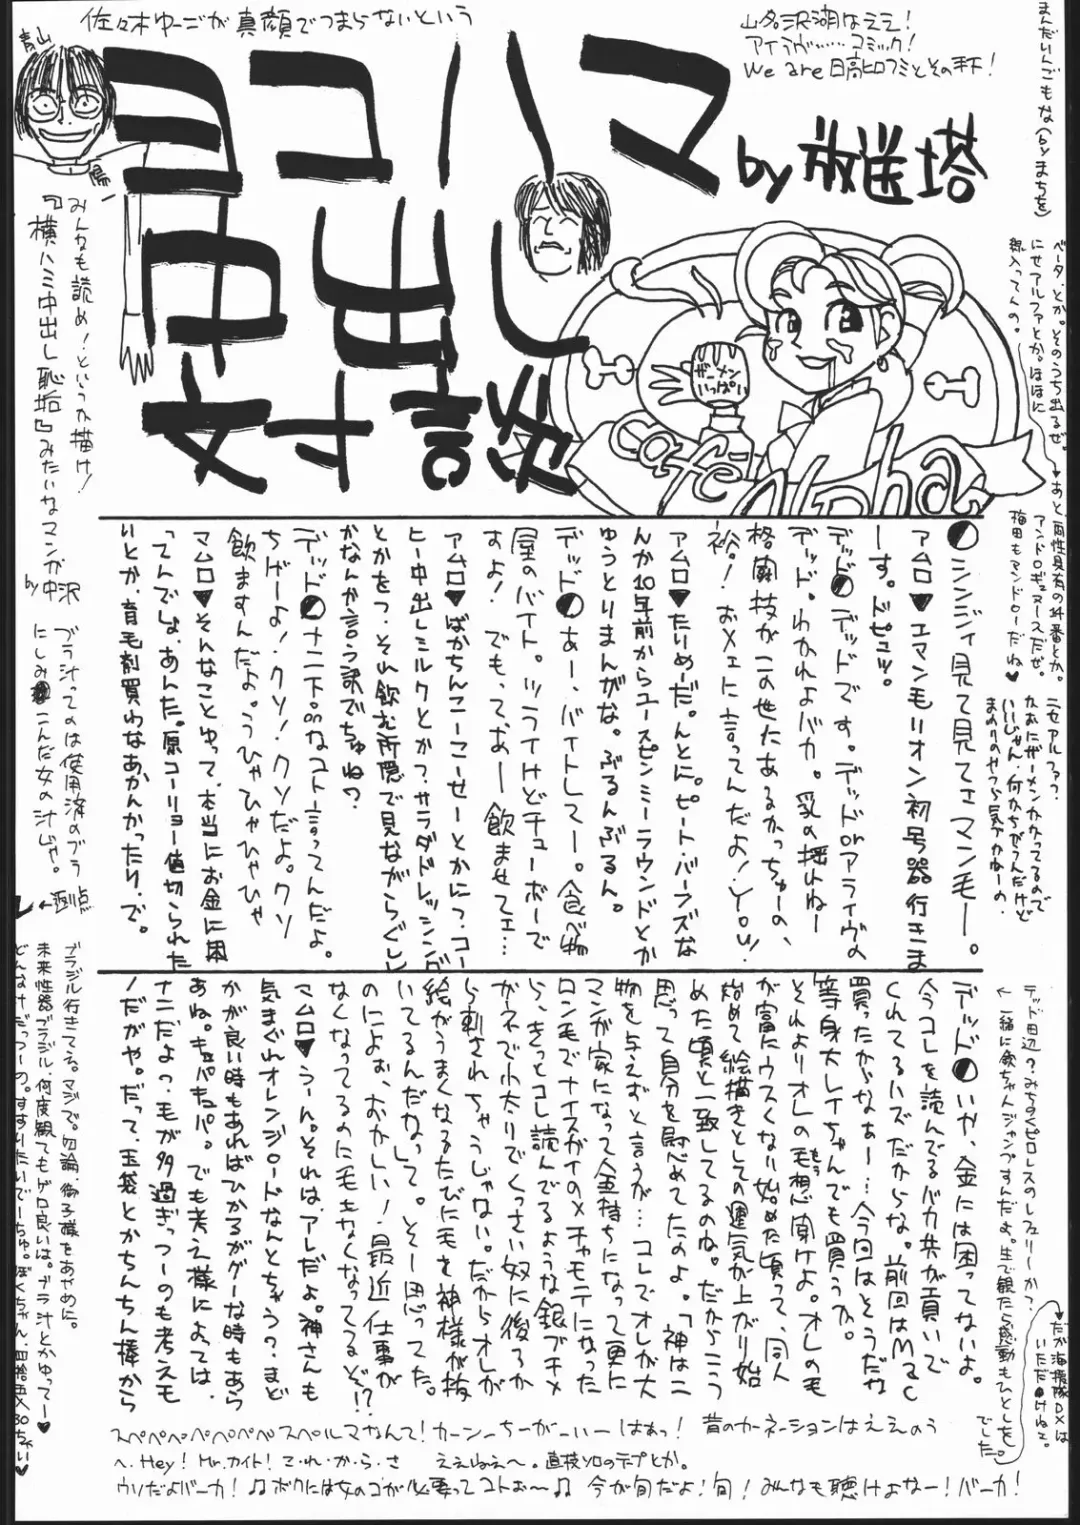 佐々木ゆーごが真顔でつまらないという
山名沢湖はええ!
アイラヴ……コミック!
We are 日高ヒロフミとその手下!
青山
ヨコハマ
中出し
対談
by 放送塔
ザーメン
いっぱい
cafe alpha
まんだいんごもな(byまちを)
ベータ、とか。そのうち出るぜ。
にせアルファとか。ほほに
あと、両性具有の
アンドロギュヌースだぜ。
梅田もマンドローだね♥
ニセアルファ?
かおにザーメンかかってるので
いいじゃん。何かちがうんだけど
みんなも読め!というか描け!
『横ハミ中出し恥垢』みたいなマンガ
by 中沢
ブラ汁ってのは使用済のブラ
にしみこんだ女の汁じゃ。
●シンジィ見て見てェマン毛ー。
アムロ♥エマン毛リオン初号器行きま
ーす。ドピュッ。
デッド●デッドです。デッドorアライヴの
デッド。わかれよバカ。乳の揺れねー
格闘技がこの世たあるかっちゅーの、
裕!おメェに言ってんだよ!You!
アムロ♥たりめーだ。んとに。ピート・バーンズな
んか10年前からユースピンミーラウンドとか
ゆうとりまんがな。ぶるんぶるん。
デッド●あー、バイトしてー。食べ物
屋のバイト。ツライけどチューボーで
すよ!でもって、あー飲ませてェ…
アムロ♥ばかちんこーこーせーとかにっ。コー
ヒー中出しミルクとかっ?サラダドレッシング
とかをっ、それ飲む所隠で見ながらぐしし
かなんか言う訳でちゅね?
デッド●ナニ下品なコト言ってんだよ。
ちげーよ!クソ!クソだよ。クソ
飲ますんだよ。うひゃひゃひゃひゃ
マムロ♥そんなことゆって、本当にお金に困
ってんでしょあんた。原コーリョー値切られた
いとか、育毛剤買わなあかんかったり、で。
デッド●いや、金には困ってないよ。
今コレを読んでるバカ共が貢いで
くれてるハズだからな。前回はMac
買ったからなぁー…今回はそうだな
等身大レイちゃんでも買うか。
それよりオレの毛想聞けよ。オレの毛
が富にウスくない始めた頃って、同人
始めて絵描きとしての運気が上がり始
めた頃と一致してるのね。だからこう
思って自分を慰めてたのよ。「神は二
物を与えず」と言うが…コレでオレが大
マンが家になって金持ちになって更に
ロン毛でナイスガイのメチャモテになった
ら、きっとコレ読んでるような銀ブチメ
ガネで小太りでくっさい奴に後ろか
ら刺されちゃうじゃない。だからオレが
絵がうまくなるたびに毛を神様が抜
いてるんだなって。そー思ってた。
のによぉ、おかしい!最近仕事が
なくなってるのに毛もなくなってるぞ!?
マムロ♥うーん。それは、アレだよ。神さんも
気まぐれオレンジロードなんとちゃう?まど
かが良い時もあればひかるがグーな時もあら
あね。キュパキュパ。でも考え様によっては、
ナニだよっ。毛が多過ぎっつーのも考えモ
ノだがや。だって、玉袋とかちんちん棒から
ブラジル行きてぇ。マジで。
未来性器ブラジル、何度観てもゲロ良いは。ブラ汁とかゆってー♥
デッド田辺?みちのくプロレスのレフェリーかっ?
一緒に飲ちゃんジャンプすんだよ。生で観たら感動もひとしを。
でした。
だが海援隊DXは
いただけねぇ。
スペペペペペペペスペルマなんて!カーンーちーがーいーはぁっ!
昔のカーネーションはええのう
へ、Hey! Mr.カイト!こ・れ・か・ら・さ
ええねぇ〜。直枝ソロのテープとか。
ウソだよバーカ!♫ボクには女のコが必要ってコトお〜♫
今が旬だよ!旬!みんなも聴けよなー!バーカ!